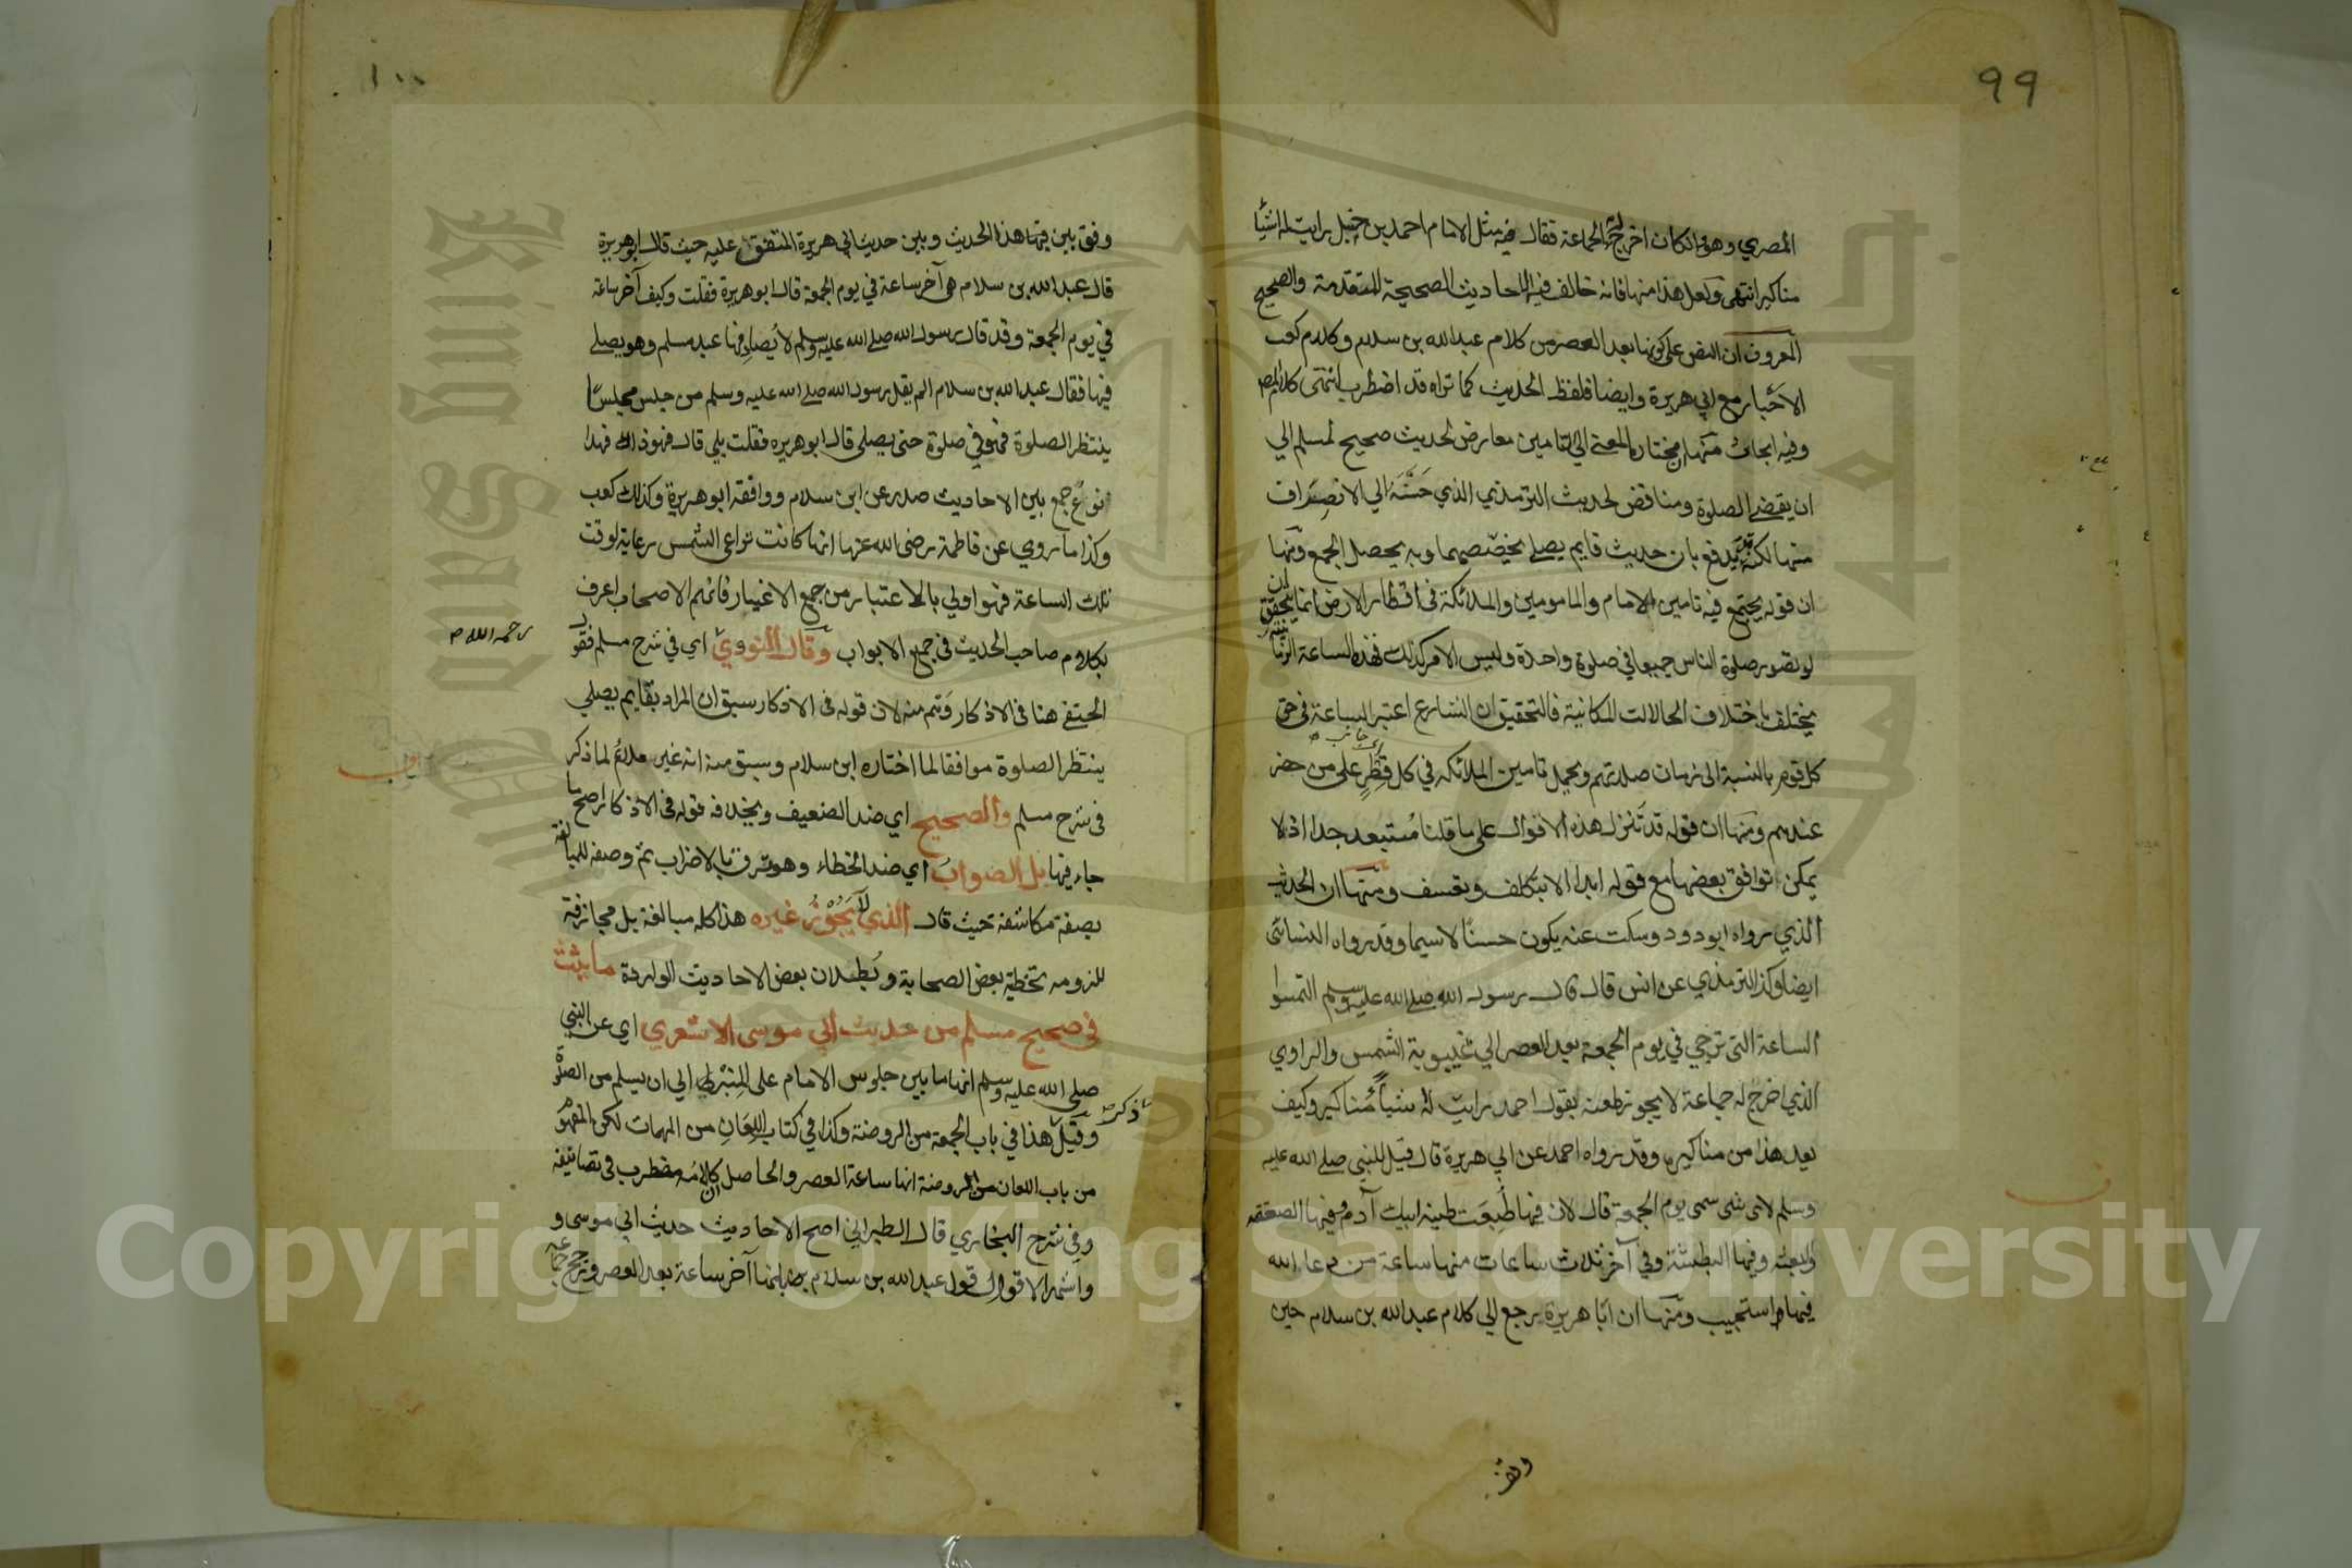 99
المصري وهو ان كان اخرج له الجماعة فقال فيه مثل الامام احمد بن حنبل رايت له اشيا
مناكير انتهى ولعل هذا منها فانه خالف فيه الاحاديث الصحيحة المتقدمة والصحيح
المعروف ان النص على كونها بعد العصر من كلام عبد الله بن سلام وكلام كعب
الاحبار مع ابي هريرة وايضا فلفظ الحديث كما تراه قد اضطرب انتهى كلام
وفيه ابحاث منها ان مختاره المعنى الى التامين معارض لحديث صحيح لمسلم الي
ان يقضي الصلوة ومناقض لحديث الترمذي الذي حسنه الي الانصراف
منها لكنه يدفع بان حديث قايم يصلي يخصصهما وبه يحصل الجمع ومنها
ان قوله يجتمع فيه تامين الامام والمامومين والملائكة في اقطار الارض انما يتحقق ان
لو تصور صلوة الناس جميعا في صلوة واحدة وليس الامر كذلك فهذه الساعة
يختلف باختلاف الحالات المكانية فالتحقيق ان الشارع اعتبر الساعة في حق
كل قوم بالنسبة الى زمان صلاتهم ويحمل تامين الملائكة في كل قطر على من حضر
عندهم ومنها ان قوله قد تنزل هذه الاقوال على ما قلنا مستبعد جدا اذ لا
يمكن توافق بعضها مع قوله ابدا الا بتكلف وتعسف ومنها ان الحديث
الذي رواه ابو دود وسكت عنه يكون حسنا لا سيما وقد رواه النسائي
ايضا وكذا الترمذي عن انس قال قال رسول الله صلى الله عليه وسلم التمسوا
الساعة التي ترجي في يوم الجمعة بعد العصر الي غيبوبة الشمس والراوي
الذي اخرج له جماعة لا يجوز طعنه بقول احمد رايت له شيأ مناكير وكيف
يعد هذا من مناكيره وقد رواه احمد عن ابي هريرة قال قيل للنبي صلى الله عليه
وسلم لاى شى سمى يوم الجمعة قال لان فيها طبعت طينة ابيك آدم وفيها الصعقة
والبعثة وفيها البطشة وفي آخر ثلاث ساعات منها ساعة من دعا الله
فيها استجيب ومنها ان ابا هريرة رجع الي كلام عبد الله بن سلام حين
١٠٠
وفق بين فيها هذا الحديث وبين حديث ابي هريرة المتفق عليه حيث قال ابو هريرة
قال عبد الله بن سلام هى آخر ساعة في يوم الجمعة قال ابو هريرة فقلت وكيف آخر ساعة
في يوم الجمعة وقد قال رسول الله صلى الله عليه وسلم لا يصادفها عبد مسلم وهو يصلي
فيها فقال عبد الله بن سلام الم يقل رسول الله صلى الله عليه وسلم من جلس مجلسا
ينتظر الصلوة فهو في صلوة حتى يصلى قال ابو هريره فقلت بلي قال فهو ذاك فهذا
نوع جمع بين الاحاديث صدر عن ابن سلام ووافقه ابو هريرة وكذلك كعب
وكذا ما روي عن فاطمة رضى الله عنها انها كانت تراعي الشمس رعاية لوقت
تلك الساعة فهو اولي بالاعتبار من جميع الاغيار فانهم الاصحاب اعرف
بكلام صاحب الحديث في جميع الابواب وقال النووي اي في شرح مسلم فقول
رحمه الله
الحنفي هنا في الاذكار وهم منه لان قوله في الاذكار سبق ان المراد بقايم يصلي
ينتظر الصلوة موافقا لما اختاره ابن سلام وسبق منه انه غير ملائم لما ذكر
في شرح مسلم والصحيح اي ضد الضعيف ويخدفه قوله في الاذكار اصح ما
جاء فيها بل الصواب اي ضد الخطاء وهو ترق بالاضراب ثم وصفه للمبالغة
بصفة مكاشفة حيث قال الذي لا يجوز غيره هذا كله مبالغة بل مجازفة
للزومه تخطية بعض الصحابة وبطلان بعض الاحاديث الواردة ما ثبت
في صحيح مسلم من حديث ابي موسى الاشعري اي عن النبي
صلى الله عليه وسلم انها ما بين جلوس الامام على المنبر الي ان يسلم من الصلوة
ذكر
وقيل هذا في باب الجمعة من الروضة وكذا في كتاب اللعان من المهمات لكن المفهوم
من باب اللعان من الروضة انها ساعة العصر والحاصل ان كلامه مضطرب في تصانيفه
وفي شرح البخاري قال الطبراني اصح الاحاديث حديث ابي موسى و
واشهر الاقوال قول عبد الله بن سلام انها آخر ساعة بعد العصر ورجح جماعة
Copyright © King Saud University
King Saud University
جامعة الملك